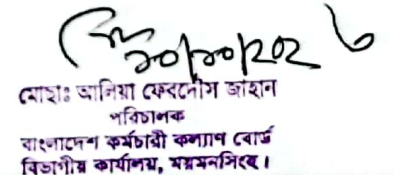 ২০/১০/২০২
মোছাঃ আনিয়া ফেরদৌস জাহান
পরিচালক
বাংলাদেশ কর্মচারী কল্যাণ বোর্ড
বিভাগীয় কার্যালয়, ময়মনসিংহ।